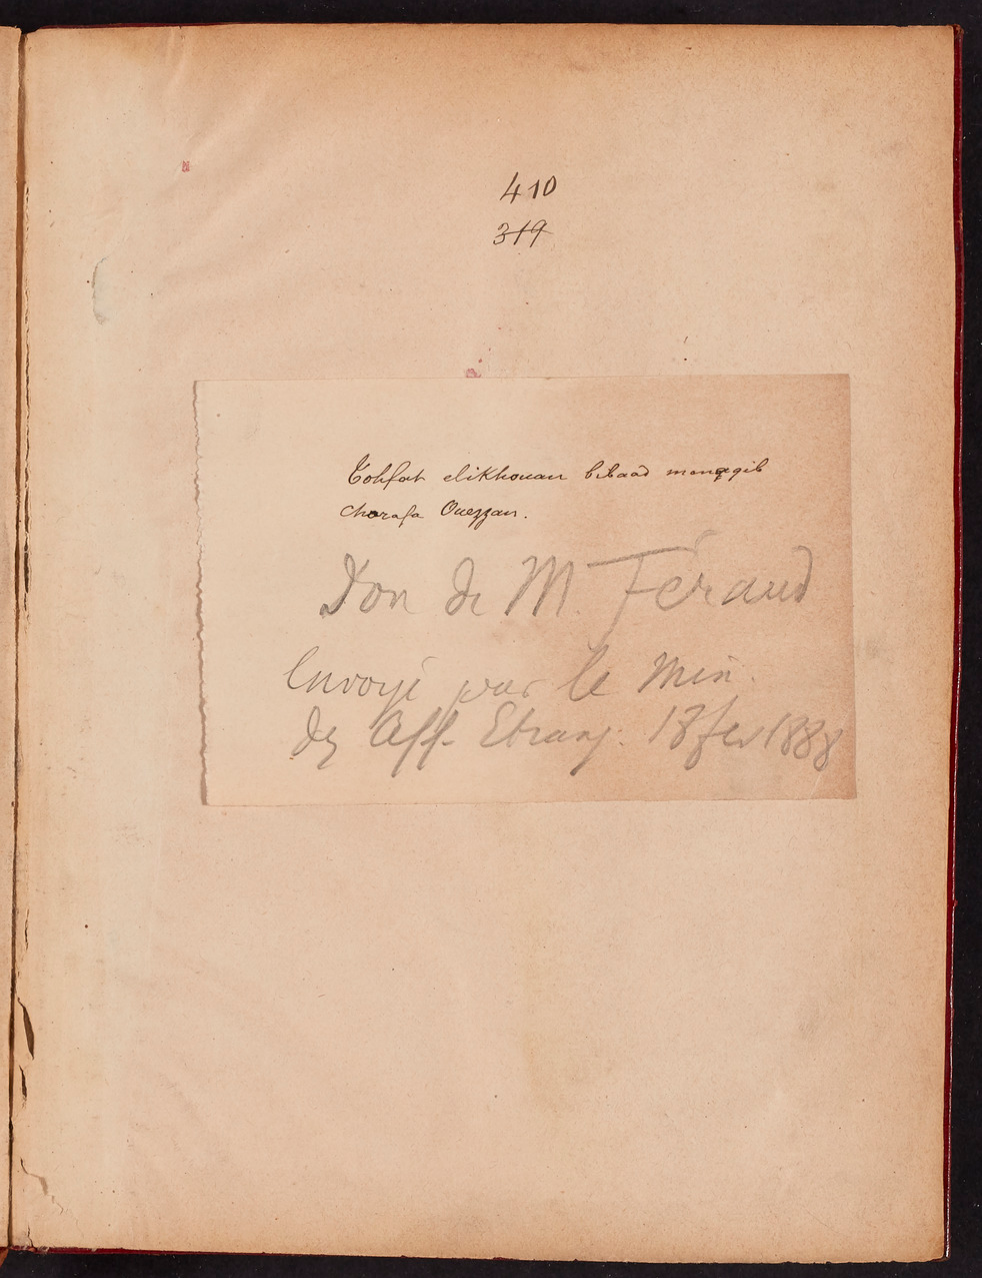 410
319
Tohfat elikhouan bibaad menaqib
chorafa Ouezzan.
Don de M. Féraud
Envoyé par le Min.
des Aff. Etrang. 18 fev 1888